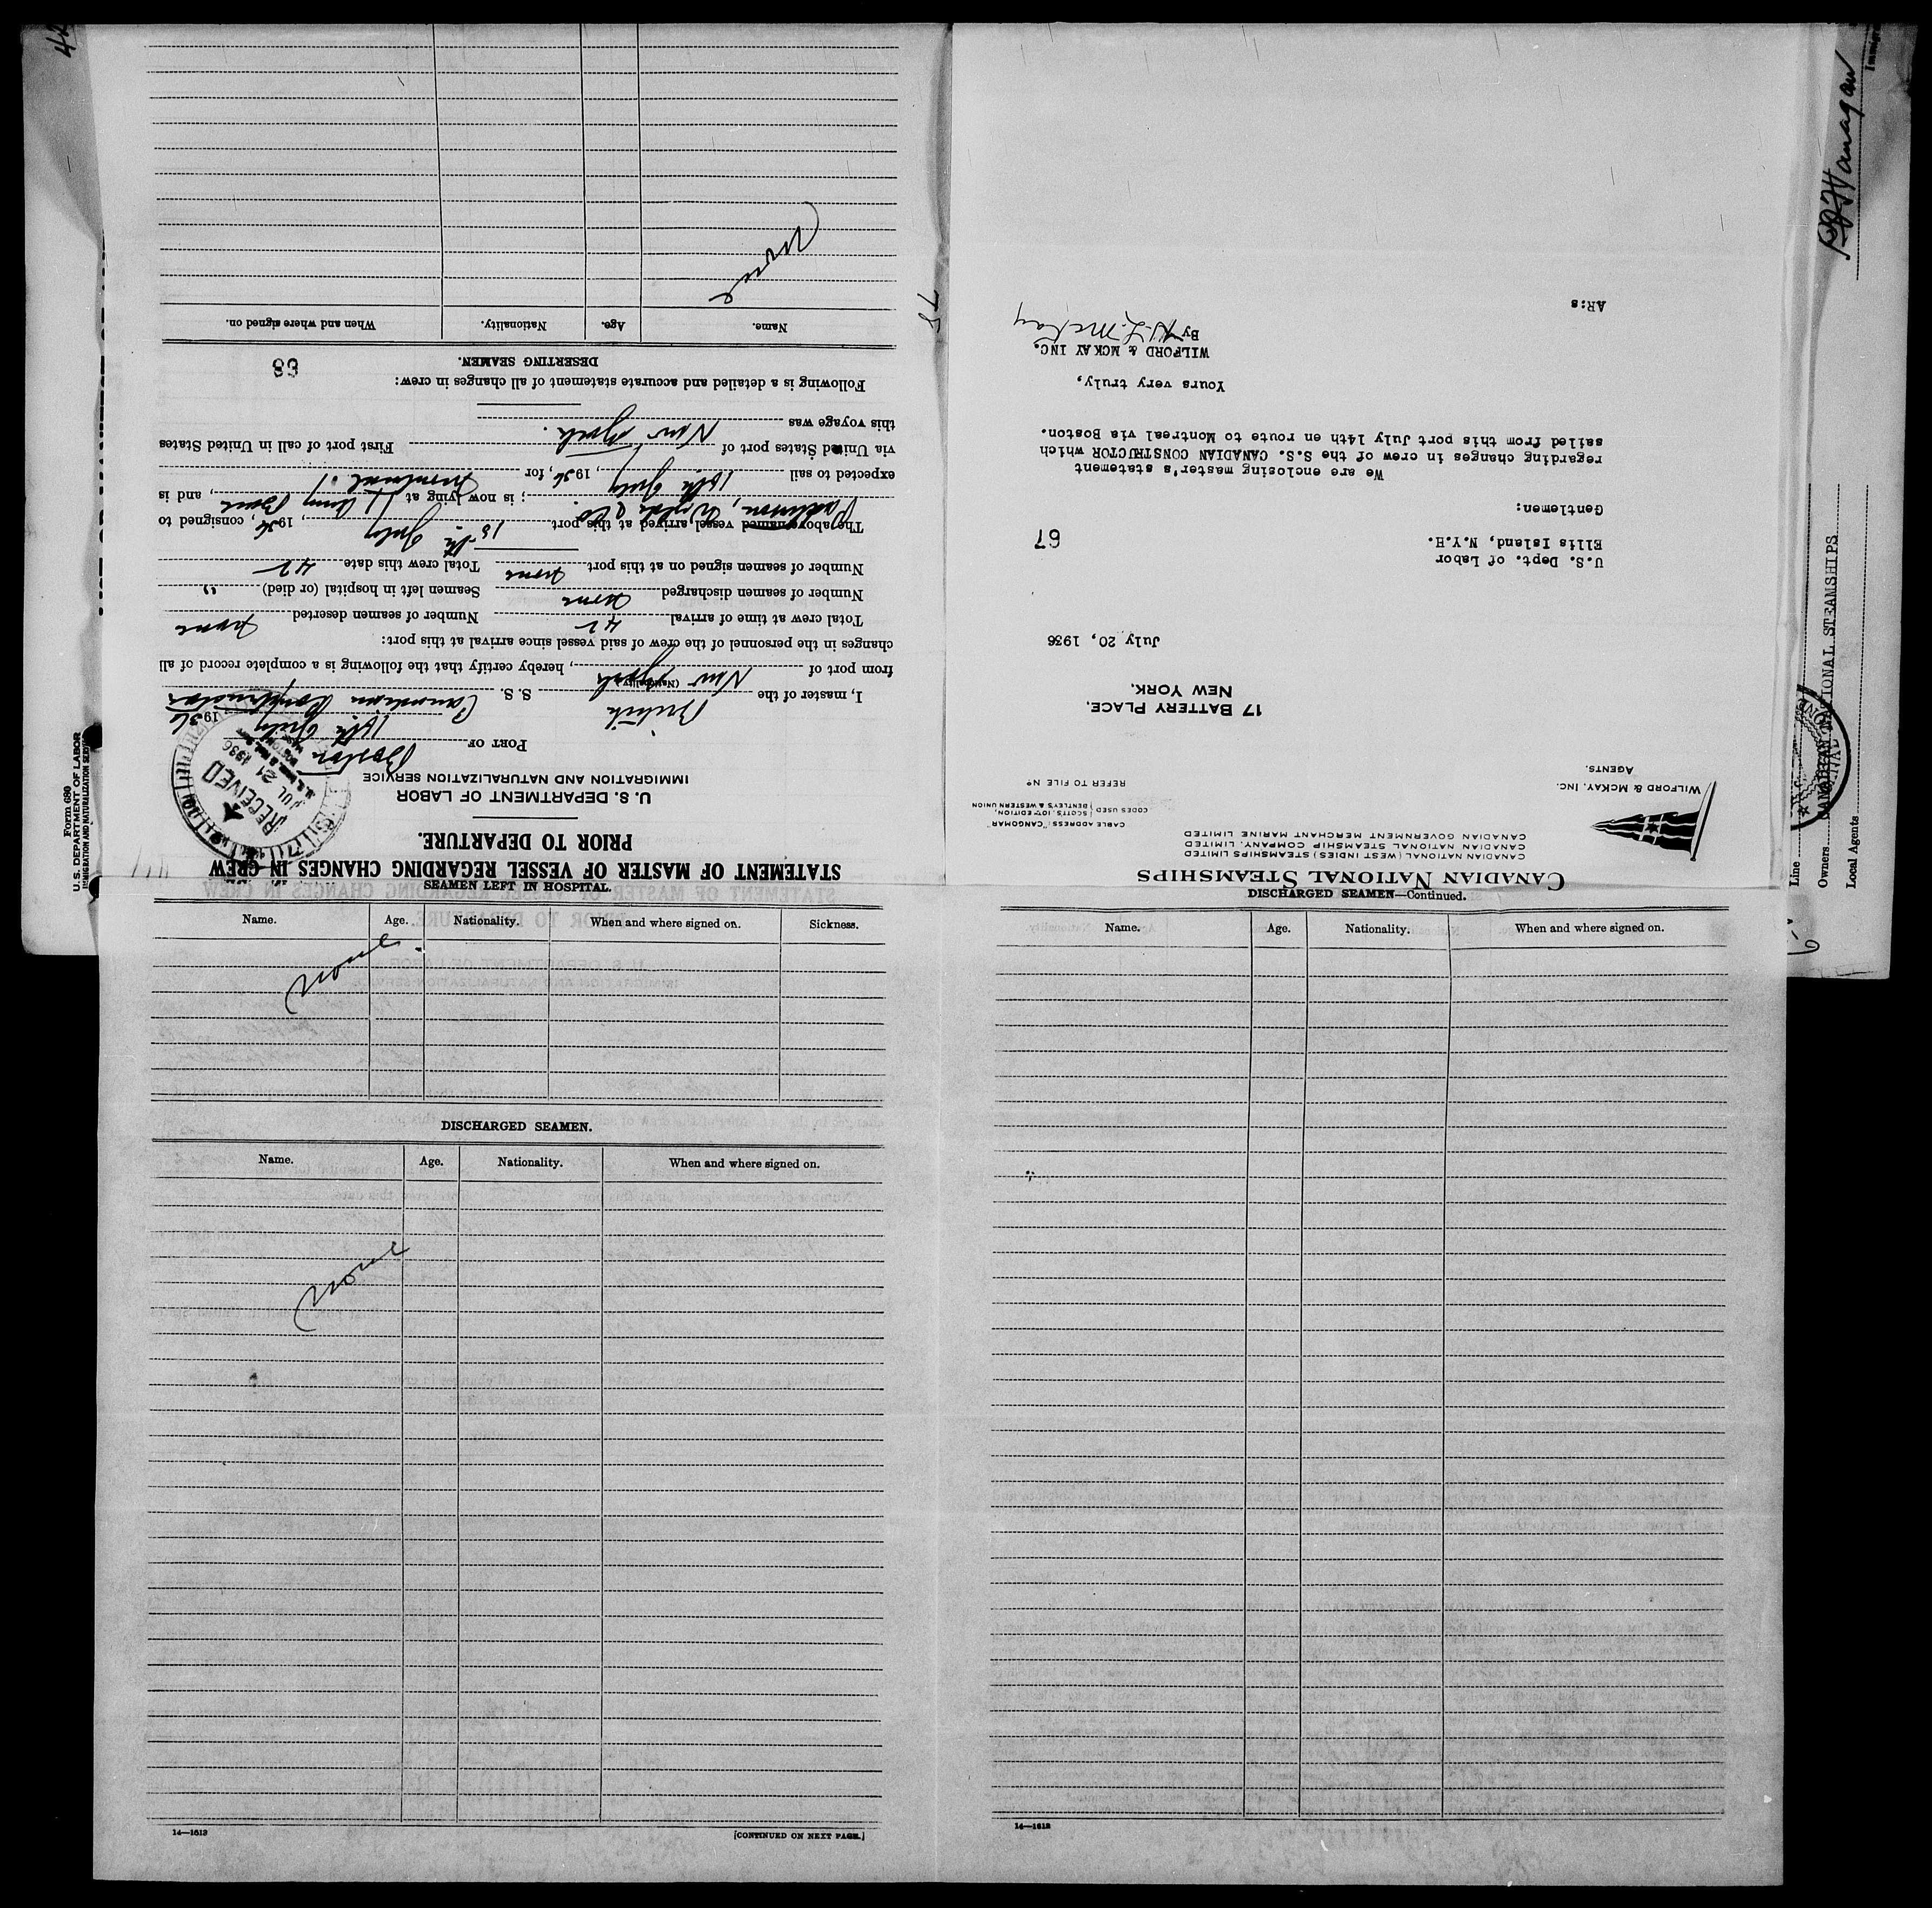 STATEMENT OF MASTER OF VESSEL REGARDING CHANGES IN CREW
PRIOR TO DEPARTURE.
U. S. DEPARTMENT OF LABOR
IMMIGRATION AND NATURALIZATION SERVICE
RECEIVED
JUL 21 1936
PORT OF Boston
18th July 1936
I, master of the British S. S. Canadian Constructor
(Nationality)
from port of New York, hereby certify that the following is a complete record of all
changes in the personnel of the crew of said vessel since arrival at this port:
Total crew at time of arrival 42 Number of seamen deserted none
Number of seamen discharged none Seamen left in hospital (or died) "
Number of seamen signed on at this port none Total crew this date 42
The above named vessel arrived at this port 15th July, 1936, consigned to
; is now lying at Army Base, and is
expected to sail 18th July, 1936, for Montreal
via United States port of First port of call in United States
this voyage was New York.
Following is a detailed and accurate statement of all changes in crew:
68
DESERTING SEAMEN.
Name. Age. Nationality. When and where signed on.
none
78
CANADIAN NATIONAL STEAMSHIPS
CANADIAN NATIONAL (WEST INDIES) STEAMSHIPS LIMITED
CANADIAN NATIONAL STEAMSHIP COMPANY, LIMITED
CANADIAN GOVERNMENT MERCHANT MARINE LIMITED
WILFORD & MCKAY, INC.
AGENTS.
CABLE ADDRESS: "CANGOMAR"
CODES USED SCOTTS, 10TH EDITION,
BENTLEY'S & WESTERN UNION
REFER TO FILE No
17 BATTERY PLACE,
NEW YORK.
July 20, 1936
U.S. Dept. of Labor
Ellis Island, N.Y.H.
67
Gentlemen:
We are enclosing master's statement
regarding changes in crew of the S.S. CANADIAN CONSTRUCTOR which
sailed from this port July 14th en route to Montreal via Boston.
Yours very truly,
WILFORD & MCKAY INC.
By
AR:s
SEAMEN LEFT IN HOSPITAL.
Name. Age. Nationality. When and where signed on. Sickness.
none
DISCHARGED SEAMEN.
Name. Age. Nationality. When and where signed on.
none
14—1613
[CONTINUED ON NEXT PAGE.]
DISCHARGED SEAMEN—Continued.
Name. Age. Nationality. When and where signed on.
14—1613
Form 680
U.S. DEPARTMENT OF LABOR
IMMIGRATION AND NATURALIZATION SERVICE
Line
Owners CANADIAN NATIONAL STEAMSHIPS
Local Agents